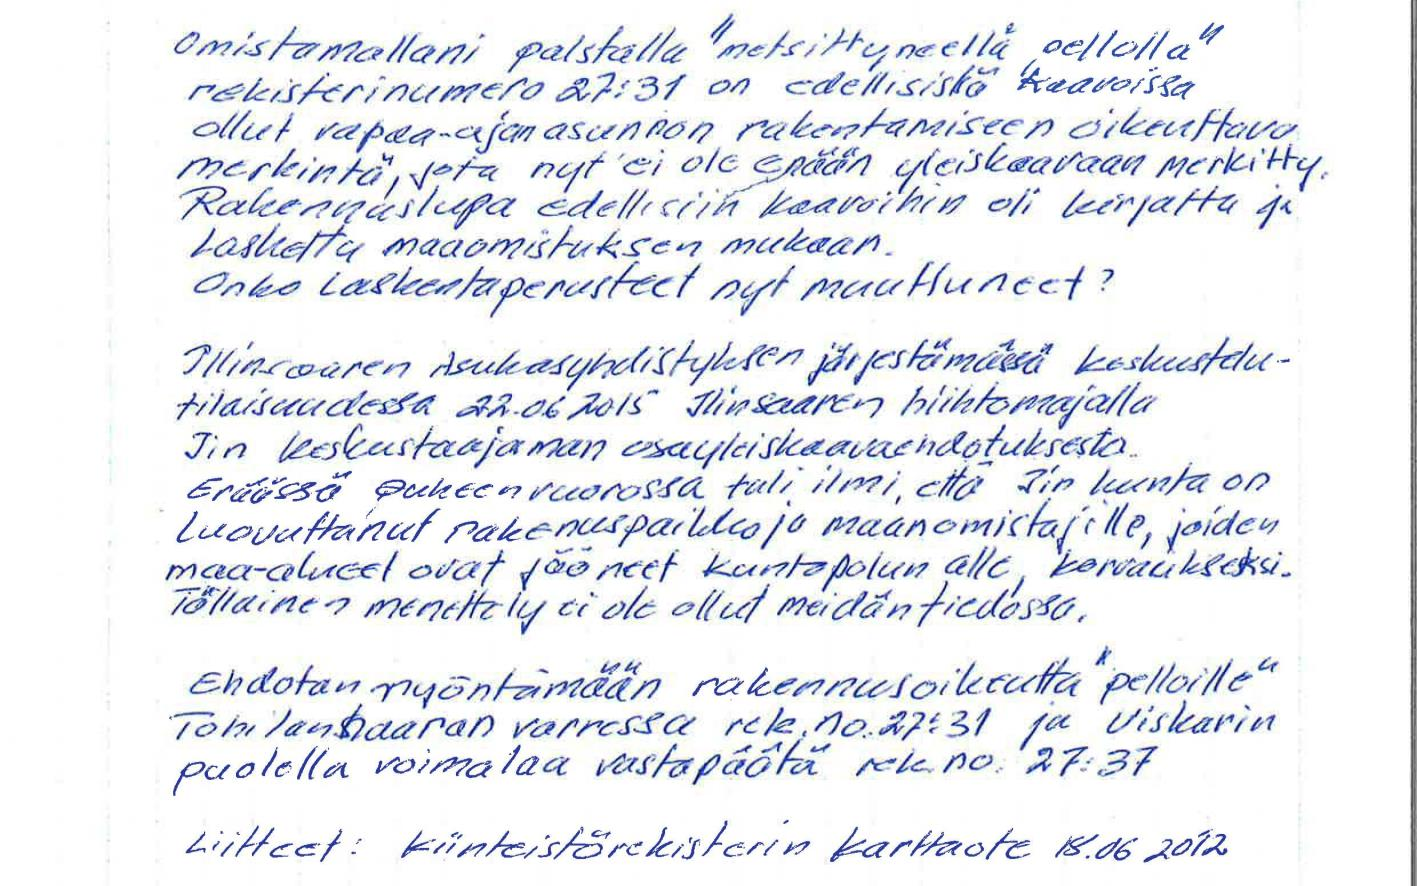 Omistamallani palstalla "metsittyneellä pellolla"
rekisterinumero 27:31 on edellisistä kaavoissa
ollut vapaa-ajan asunnon rakentamiseen oikeuttava
merkintä, jota nyt ei ole enään yleiskaavaan merkitty.
Rakennuslupa edellisiin kaavoihin oli kirjattu ja
laskettu maaomistuksen mukaan.
Onko laskentaperusteet nyt muuttuneet?
Illinsaaren Asukasyhdistyksen järjestämässä keskustelu-
tilaisuudessa 22.06 2015 Ilinsaaren hiihtomajalla
Iin keskustaajaman osayleiskaavaehdotuksesta.
Eräässä puheenvuorossa tuli ilmi, että Iin kunta on
luovuttanut rakenuspaikkoja maanomistajille, joiden
maa-alueet ovat jääneet kuntopolun alle, korvaukseksi.
Tällainen menettely ei ole ollut meidän tiedossa.
Ehdotan myöntämään rakennusoikeutta "pelloille"
varressa rek.no.27:31 ja Viskarin
puolella voimalaa vastapäätä rek.no. 27:37
Liitteet: Kiinteistörekisterin karttaote 18.06 2012